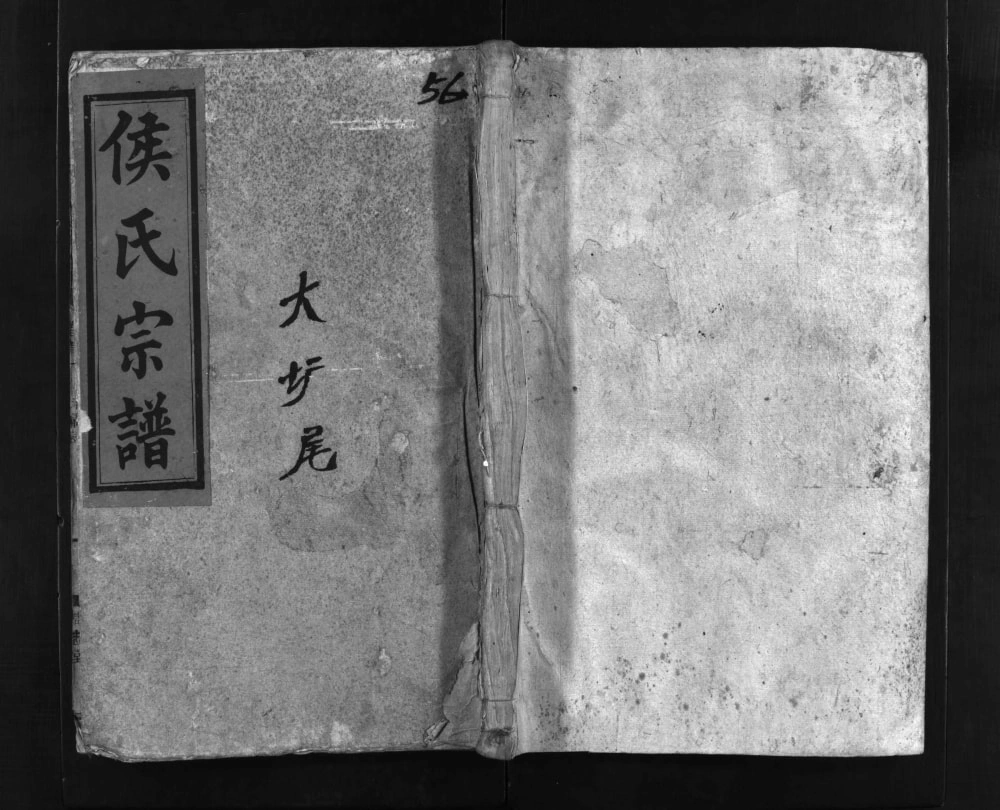 56
侯氏宗譜
大圹尾